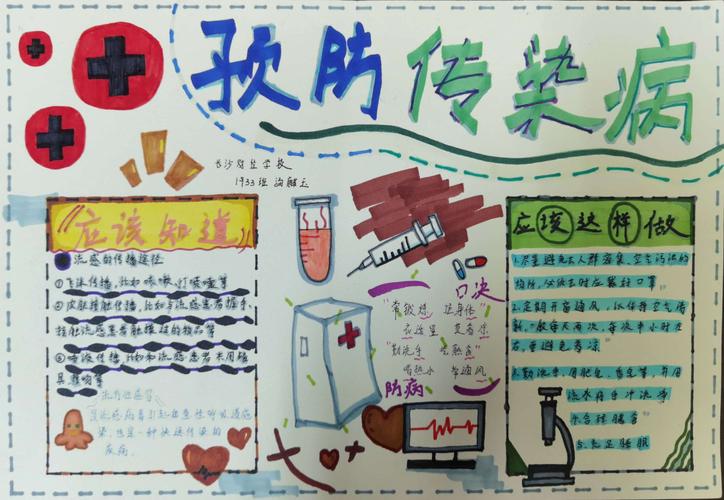 预防传染病
1933班
应该知道
流感的传播途径
①飞沫传播,比如咳嗽、打喷嚏等
②皮肤接触传播,比如与流感患者握手、
接触流感患者触摸过的物品等
③唾液传播,比如和流感患者共用餐
具、接吻等
流行性感冒
是流感病毒引起的急性呼吸道感
染,也是一种快速传染的
疾病。
口决
"常锻炼 强身体"
"勤洗手 吃熟食"
喝热水 常通风"
防病
应该这样做
1.尽量避免去人群密集、空气污浊的
场所,必须去时应戴好口罩
2.定期开窗通风,以保持空气清
新,一般每天两次,每次半小时左
右,但避免着凉。
3.勤洗手,用肥皂、香皂等,并用
流水将手冲洗净
5.充足睡眠